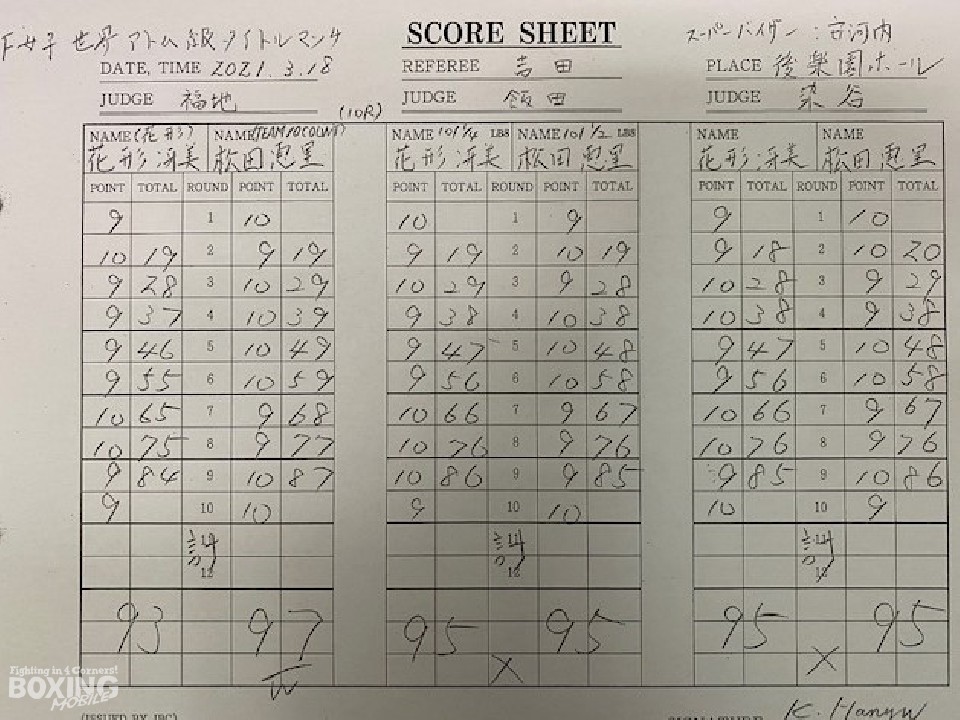 SCORE SHEET
F女子 世界アトム級タイトルマッチ
スーパーバイザー：安河内
DATE, TIME 2021.3.18
REFEREE 吉田
PLACE 後楽園ホール
JUDGE 福地
(10R)
JUDGE 飯田
染谷 JUDGE
NAME (花形) NAME (TEAM 10COUNT) NAME 101 1/4 LBS NAME 101 1/2 LBS NAME NAME
花形冴美 松田恵里 花形冴美 松田恵里 花形冴美 松田恵里
POINT TOTAL ROUND POINT TOTAL POINT TOTAL ROUND POINT TOTAL POINT TOTAL ROUND POINT TOTAL
9 1 10 10 1 9 9 1 10
10 19 2 9 19 9 19 2 10 19 9 18 2 10 20
9 28 3 10 29 10 29 3 9 28 10 28 3 9 29
9 37 4 10 39 9 38 4 10 38 10 38 4 9 38
9 46 5 10 49 9 47 5 10 48 9 47 5 10 48
9 55 6 10 59 9 56 6 10 58 9 56 6 10 58
10 65 7 9 68 10 66 7 9 67 10 66 7 9 67
10 75 8 9 77 10 76 8 9 76 10 76 8 9 76
9 84 9 10 87 10 86 9 9 85 9 85 9 10 86
9 10 10 9 10 10 10 10 9
計 計 計
12 12 12
93 97 95 95 95 95
W X X
Fighting in 4 Corners!
BOXING
MOBILE
(ISSUED BY JBC)
K. Hanyu